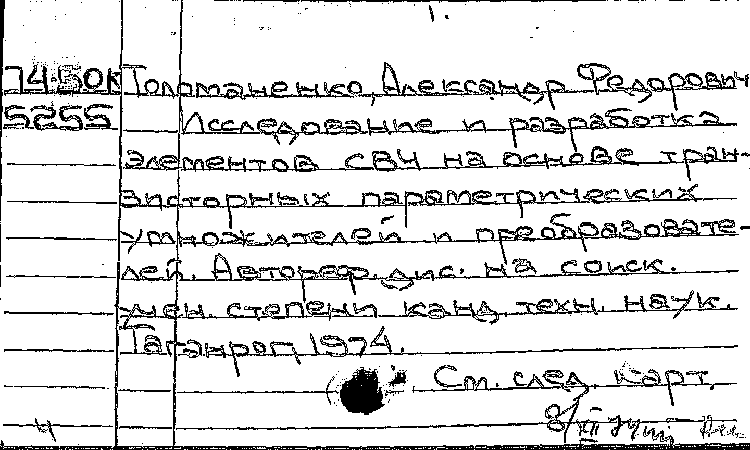 1.
74-50К Толоманенко, Александр Федорович
5255 Исследование и разработка
элементов СВЧ на основе тран-
зисторных параметрических
умножителей и преобразовате-
лей. Автореф. дис. на соиск.
учен. степени канд. техн. наук.
Таганрог, 1974.
См. след. карт.
Ч 8/XII